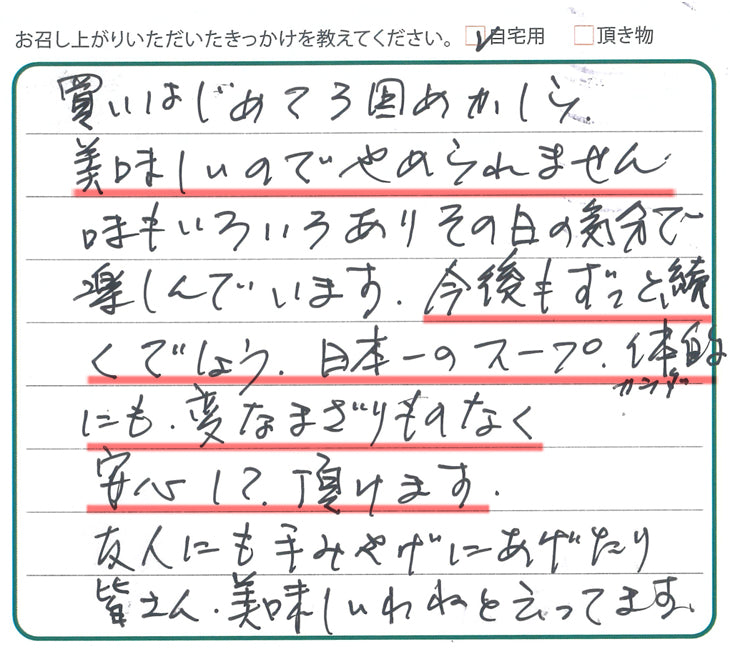 お召し上がりいただいたきっかけを教えてください。 自宅用 頂き物
買いはじめて3回めかしら.
美味しいのでやめられません
味もいろいろありその日の気分で
楽しんでいます. 今後もずっと続
くでしょう. 日本一のスープ. 体的
カンダ
にも. 変なまざりものなく
安心して. 頂けます.
友人にも手みやげにあげたり
皆さん. 美味しいわねと云ってます.